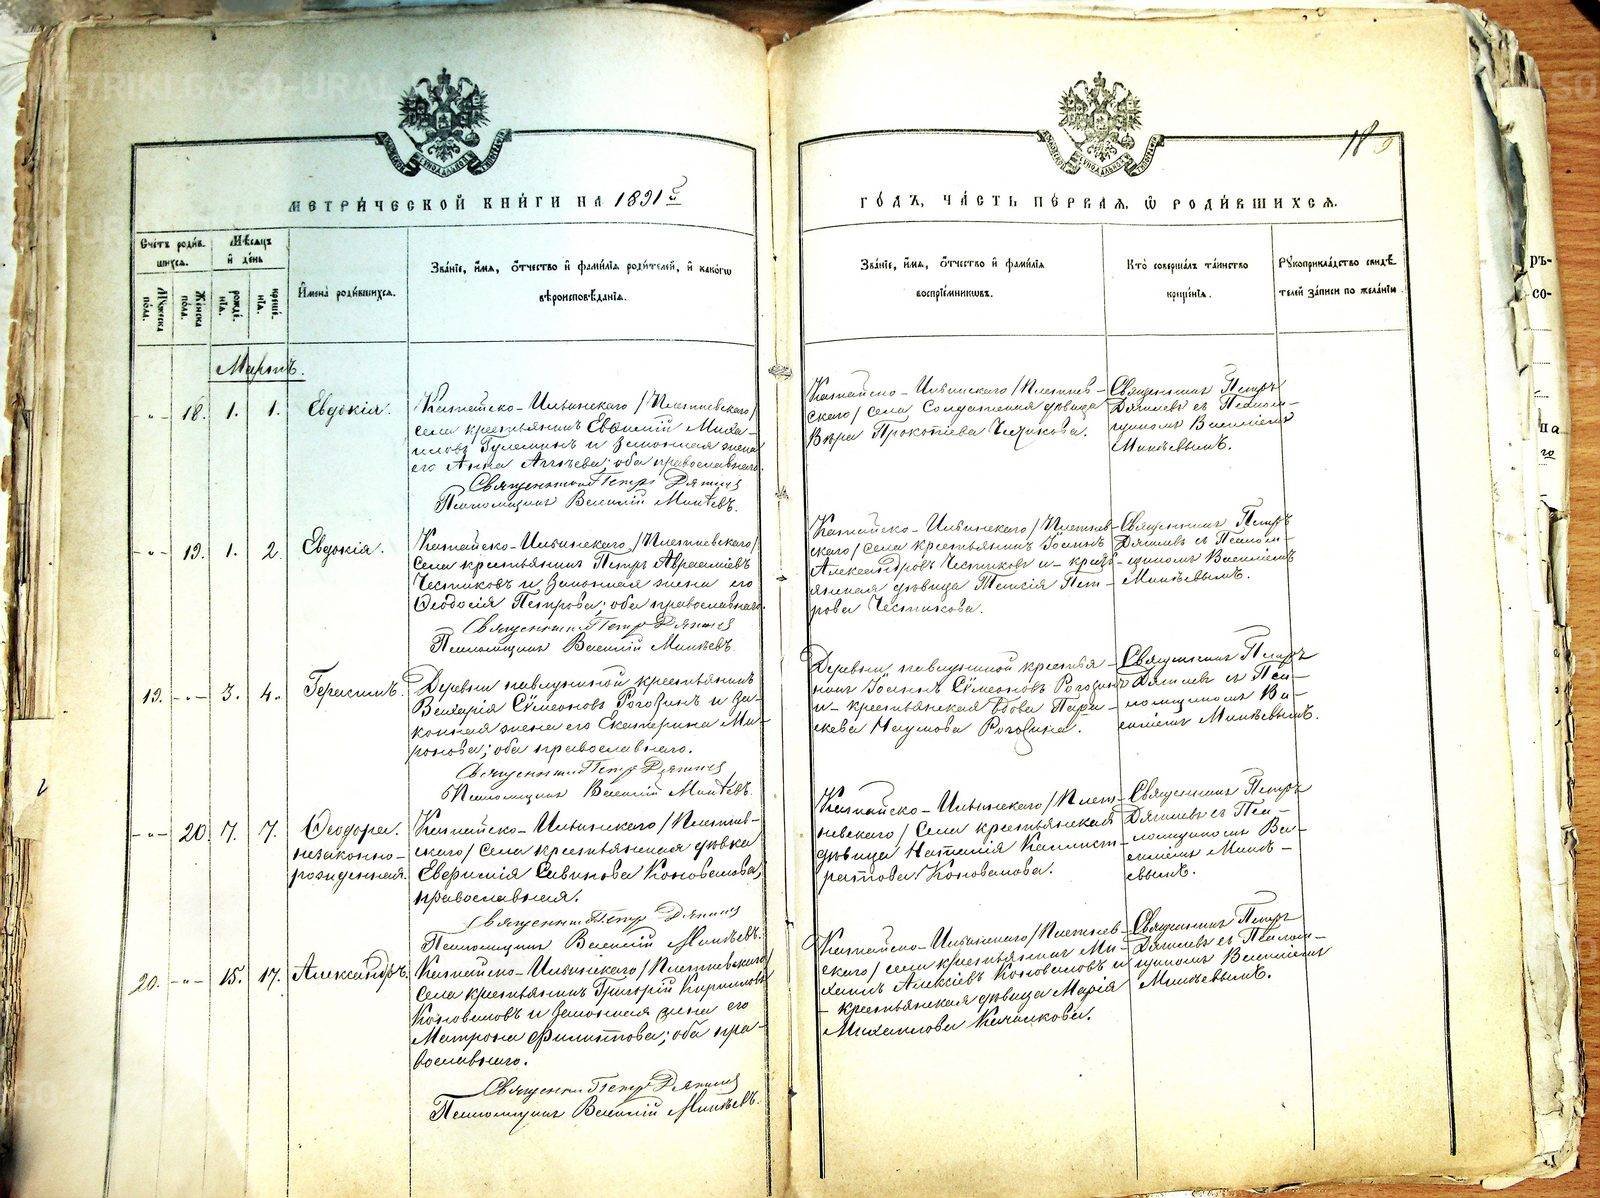 МЕТРИ́ЧЕСКОЙ КНИ́ГИ НА 1891 й
ГО́ДЪ, ЧА́СТЬ ПЕ́РВАЯ, Ѡ РОДИ́ВШИХСЯ.
18
Сче́тъ роди́в-
шихся.
Мѣ́сяцъ
и҆ де́нь
Му́жеска по́ла.
Же́нска по́ла.
рожде́нїѧ.
креще́нїѧ.
И҆мена̀ роди́вшихся.
Зва́нїе, и҆́мя, ѻ҆́тчество и҆ фами́лїя роди́телей, и҆ како́гѡ
вѣроисповѣ́данїѧ.
Зва́нїе, и҆́мя, ѻ҆́тчество и҆ фами́лїя
воспрїе́мниковъ.
Кто̀ соверша́лъ та́инство
креще́нїѧ.
Рꙋкоприкла́дство свидѣ́-
телей за́писи по жела́нїю.
Мартъ.
-"- 18. 1. 1. Евдокія.
Катайско-Ильинскаго /Плетневскаго/
села крестьянинъ Евѳимій Миха-
иловъ и законная жена
его Анна; оба православнаго.
Священникъ Петръ Дягилев
Псаломщикъ Василій Минѣевъ.
Катайско-Ильинскаго /Плетнев-
скаго/ села Солдатская дѣвица
Вѣра Прокопіева Чистикова.
Священникъ Петръ
Дягилевъ съ Псалом-
щикомъ Василіемъ
Минѣевымъ.
-"- 19. 1. 2. Евдокія.
Катайско-Ильинскаго /Плетневскаго/
села крестьянинъ Петръ Авраміевъ
Чистиковъ и законная жена его
Ѳеодосія Петрова; оба православнаго.
Священникъ Петръ Дягилев
Псаломщикъ Василій Минѣевъ
Катайско-Ильинскаго /Плетнев-
скаго/ села крестьянинъ Іоаннъ
Александровъ Чистиковъ и крест-
янская дѣвица Таисія Пет-
рова Чистикова.
Священникъ Петръ
Дягилевъ съ Псалом-
щикомъ Василіемъ
Минѣевымъ.
19. -"- 3. 4. Герасимъ.
Деревни крестьянинъ
Захарія Сѵмеоновъ Рогозинъ и за-
конная жена его Екатерина Ми-
ронова; оба православнаго.
Священникъ Петръ Дягилев
Псаломщикъ Василій Минѣевъ.
Деревни крестья-
нинъ Іоаннъ Сѵмеоновъ Рогозинъ
и крестьянская вдова Пара-
скева Наумова Рогозина.
Священникъ Петръ
Дягилевъ съ Пса-
ломщикомъ Ва-
силіемъ Минѣевымъ.
-"- 20. 7. 7. Ѳеодора.
незаконно-
рожденная.
Катайско-Ильинскаго /Плетнев-
скаго/ села крестьянская дѣвка
Евфимія Саввинова Коновалова,
православная.
Священникъ Петръ Дягилев
Псаломщикъ Василій Минѣевъ.
Катайско-Ильинскаго /Плет-
невскаго/ села крестьянская
дѣвица Наталія Каллист-
ратова Коновалова.
Священникъ Петръ
Дягилевъ съ Пса-
ломщикомъ Ва-
силіемъ Минѣ-
евымъ.
20. -"- 15. 17. Александръ.
Катайско-Ильинскаго /Плетневскаго/
села крестьянинъ Григорій Кирилловъ
Коноваловъ и законная жена его
Матрона Филиппова; оба пра-
вославнаго.
Священникъ Петръ Дягилев
Псаломщикъ Василій Минѣевъ.
Катайско-Ильинскаго /Плетнев-
скаго/ села крестьянинъ Ми-
хаилъ Алексіевъ Коноваловъ и
крестьянская дѣвица Марія
Михаилова Качалкова.
Священникъ Петръ
Дягилевъ съ Псалом-
щикомъ Василіемъ
Минѣевымъ.